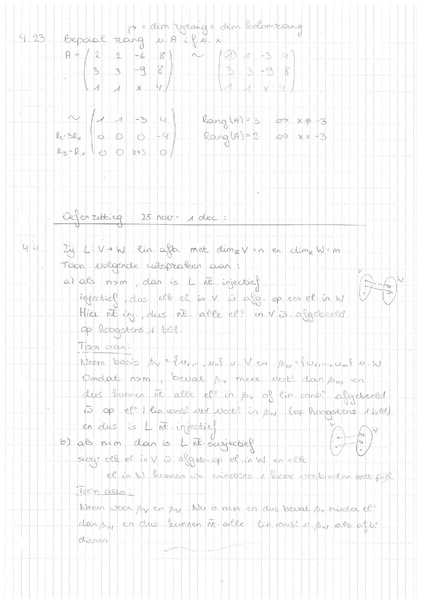 ρ = dim rijrang = dim kolomrang
4.23 Bepaal rang v A i.f.v. x
A = ( 2 2 -6 8 ) ~ ( 1 1 -3 4 )
( 3 3 -9 8 ) ( 3 3 -9 8 )
( 1 1 x 4 ) ( 1 1 x 4 )
~ ( 1 1 -3 4 ) Rang(A) = 3 ⇔ x ≠ -3
R2-3R1 ( 0 0 0 -4 ) Rang(A) = 2 ⇔ x = -3
R3-R1 ( 0 0 x+3 0 )
Oefenzitting 25 nov - 1 dec :
4.4 Zij L: V → W lin. afb. met dim V = n en dim W = m
Toon volgende uitspraken aan :
a) als n>m, dan is L nt injectief
injectief, dus elk el. in V is afg. op een el. in W
Hier nt inj., dus nt alle elⁿ in V is afgebeeld
op hoogstens 1 bld.
Toon aan:
Neem basis βv = {v1, ..., vn} v. V en βw = {w1, ..., wm} v. W
Omdat n>m, bevat βv meer vectⁿ dan βw en
dus kunnen nt alle elⁿ in βv of lin. combⁱ afgebeeld
is op elⁿ / lin combⁱ vd vectⁿ in βw (op hoogstens 1 bld)
en dus is L nt injectief
b) als n<m dan is L nt surjectief
surj: elk el in V is afgeb. op el. in W en elk
el in W kunnen we minstens 1 keer verbinden met pijl
Toon aan:
Neem weer βv en βw. Nu is n<m en dus bevat βv minder elⁿ
dan βw en dus kunnen nt alle lin. combⁱ v. βw als afbⁱ
dienen
V W
V W